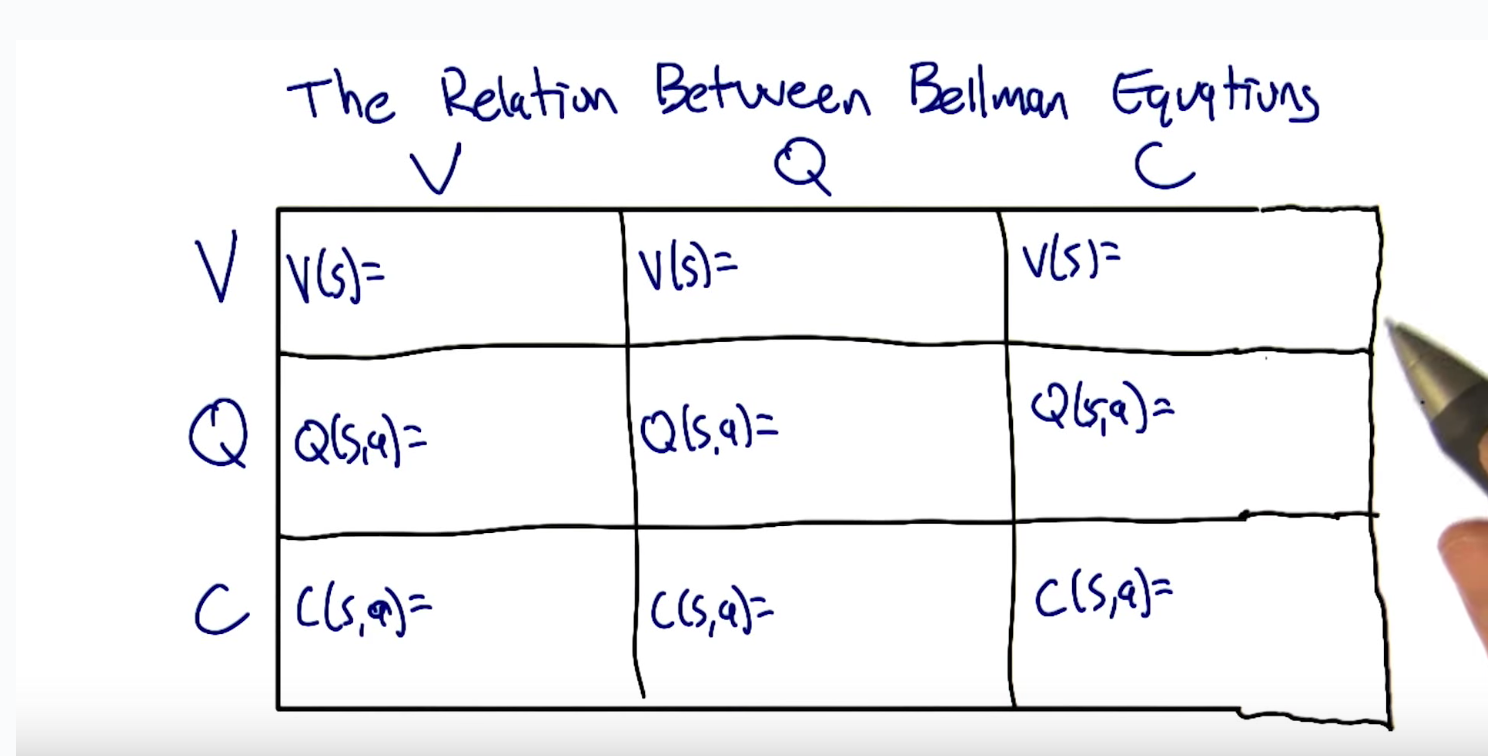 The Relation Between Bellman Equations
V Q C
V V(s)= V(s)= V(s)=
Q Q(s,a)= Q(s,a)= Q(s,a)=
C C(s,a)= C(s,a)= C(s,a)=